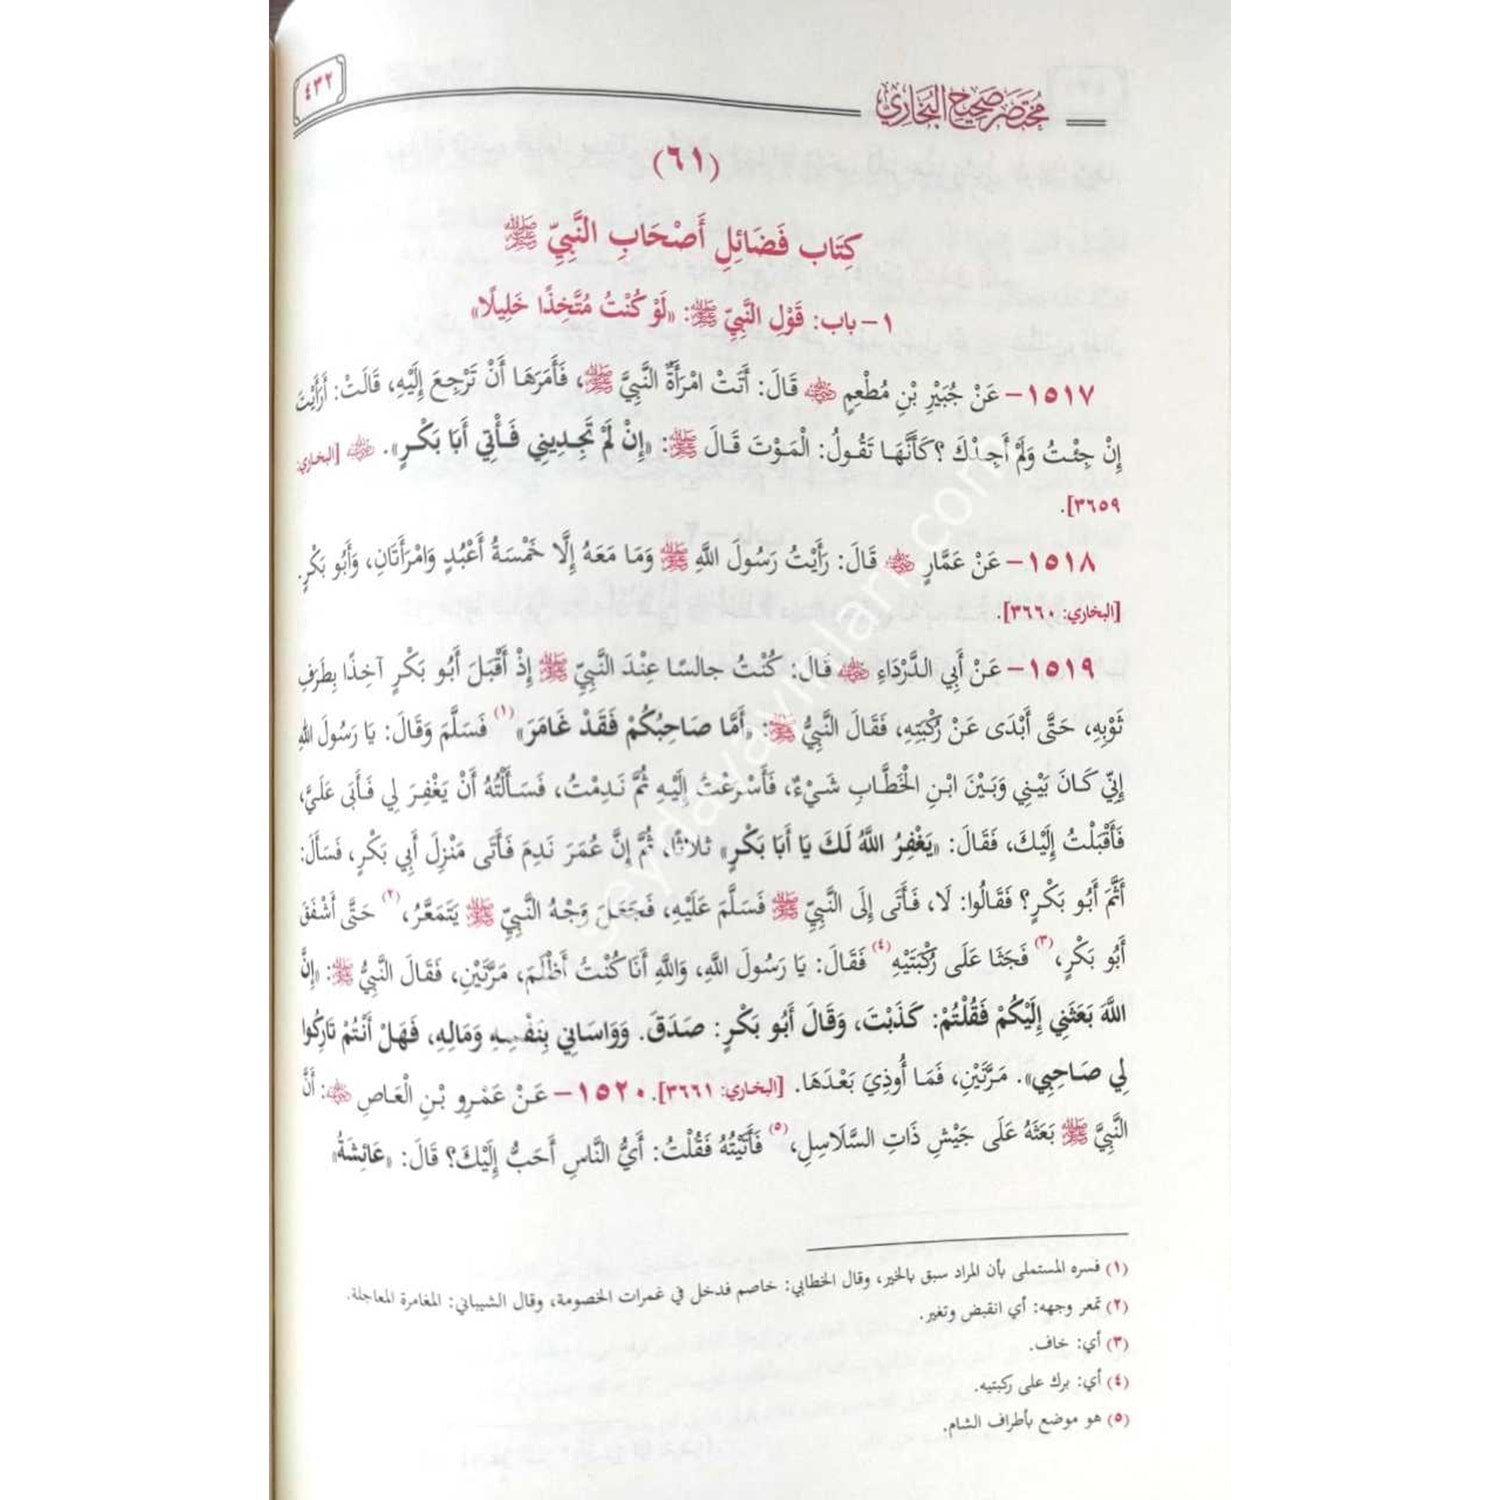 مُخْتَصَر صَحِيح البُخَارِي
٤٣٢
(٦١)
كِتَاب فَضَائِلِ أَصْحَابِ النَّبِيِّ ﷺ
١- باب: قَوْلِ النَّبِيِّ ﷺ: «لَوْ كُنْتُ مُتَّخِذًا خَلِيلًا»
١٥١٧- عَنْ جُبَيْرِ بْنِ مُطْعِمٍ رضي الله عنه قَالَ: أَتَتْ امْرَأَةٌ النَّبِيَّ ﷺ، فَأَمَرَهَا أَنْ تَرْجِعَ إِلَيْهِ، قَالَتْ: أَرَأَيْتَ
إِنْ جِئْتُ وَلَمْ أَجِدْكَ؟ كَأَنَّهَا تَقُولُ: الْمَوْتَ قَالَ ﷺ: «إِنْ لَمْ تَجِدِينِي فَأْتِي أَبَا بَكْرٍ». رضي الله عنه [البخاري:
٣٦٥٩].
١٥١٨- عَنْ عَمَّارٍ رضي الله عنه قَالَ: رَأَيْتُ رَسُولَ اللَّهِ ﷺ وَمَا مَعَهُ إِلَّا خَمْسَةُ أَعْبُدٍ وَامْرَأَتَانِ، وَأَبُو بَكْرٍ.
[البخاري: ٣٦٦٠].
١٥١٩- عَنْ أَبِي الدَّرْدَاءِ رضي الله عنه قَالَ: كُنْتُ جالسًا عِنْدَ النَّبِيِّ ﷺ إِذْ أَقْبَلَ أَبُو بَكْرٍ آخِذًا بِطَرَفِ
ثَوْبِهِ، حَتَّى أَبْدَى عَنْ رُكْبَتِهِ، فَقَالَ النَّبِيُّ ﷺ: «أَمَّا صَاحِبُكُمْ فَقَدْ غَامَرَ»(١) فَسَلَّمَ وَقَالَ: يَا رَسُولَ اللهِ
إِنِّي كَانَ بَيْنِي وَبَيْنَ ابْنِ الْخَطَّابِ شَيْءٌ، فَأَسْرَعْتُ إِلَيْهِ ثُمَّ نَدِمْتُ، فَسَأَلْتُهُ أَنْ يَغْفِرَ لِي فَأَبَى عَلَيَّ،
فَأَقْبَلْتُ إِلَيْكَ، فَقَالَ: «يَغْفِرُ اللَّهُ لَكَ يَا أَبَا بَكْرٍ» ثَلَاثًا، ثُمَّ إِنَّ عُمَرَ نَدِمَ فَأَتَى مَنْزِلَ أَبِي بَكْرٍ، فَسَأَلَ:
أَثَمَّ أَبُو بَكْرٍ؟ فَقَالُوا: لَا، فَأَتَى إِلَى النَّبِيِّ ﷺ فَسَلَّمَ عَلَيْهِ، فَجَعَلَ وَجْهُ النَّبِيِّ ﷺ يَتَمَعَّرُ،(٢) حَتَّى أَشْفَقَ
أَبُو بَكْرٍ،(٣) فَجَثَا عَلَى رُكْبَتَيْهِ(٤) فَقَالَ: يَا رَسُولَ اللَّهِ، وَاللَّهِ أَنَا كُنْتُ أَظْلَمَ، مَرَّتَيْنِ، فَقَالَ النَّبِيُّ ﷺ: «إِنَّ
اللَّهَ بَعَثَنِي إِلَيْكُمْ فَقُلْتُمْ: كَذَبْتَ، وَقَالَ أَبُو بَكْرٍ: صَدَقَ. وَوَاسَانِي بِنَفْسِهِ وَمَالِهِ، فَهَلْ أَنْتُمْ تَارِكُوا
لِي صَاحِبِي». مَرَّتَيْنِ، فَمَا أُوذِيَ بَعْدَهَا. [البخاري: ٣٦٦١]. ١٥٢٠- عَنْ عَمْرِو بْنِ الْعَاصِ رضي الله عنه: أَنَّ
النَّبِيَّ ﷺ بَعَثَهُ عَلَى جَيْشِ ذَاتِ السَّلَاسِلِ،(٥) فَأَتَيْتُهُ فَقُلْتُ: أَيُّ النَّاسِ أَحَبُّ إِلَيْكَ؟ قَالَ: «عَائِشَةُ»
(١) فسره المستملى بأن المراد سبق بالخير، وقال الخطابي: خاصم فدخل في غمرات الخصومة، وقال الشيباني: المغامرة المعاجلة.
(٢) تمعر وجهه: أي انقبض وتغير.
(٣) أي: خاف.
(٤) أي: برك على ركبتيه.
(٥) هو موضع بأطراف الشام.
seydayayinlari.com